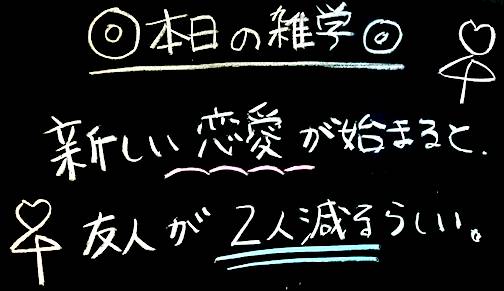 ◎本日の雑学◎
新しい恋愛が始まると、
友人が2人減るらしい。